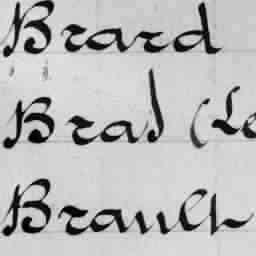 Brard
Bras (Le
Brault